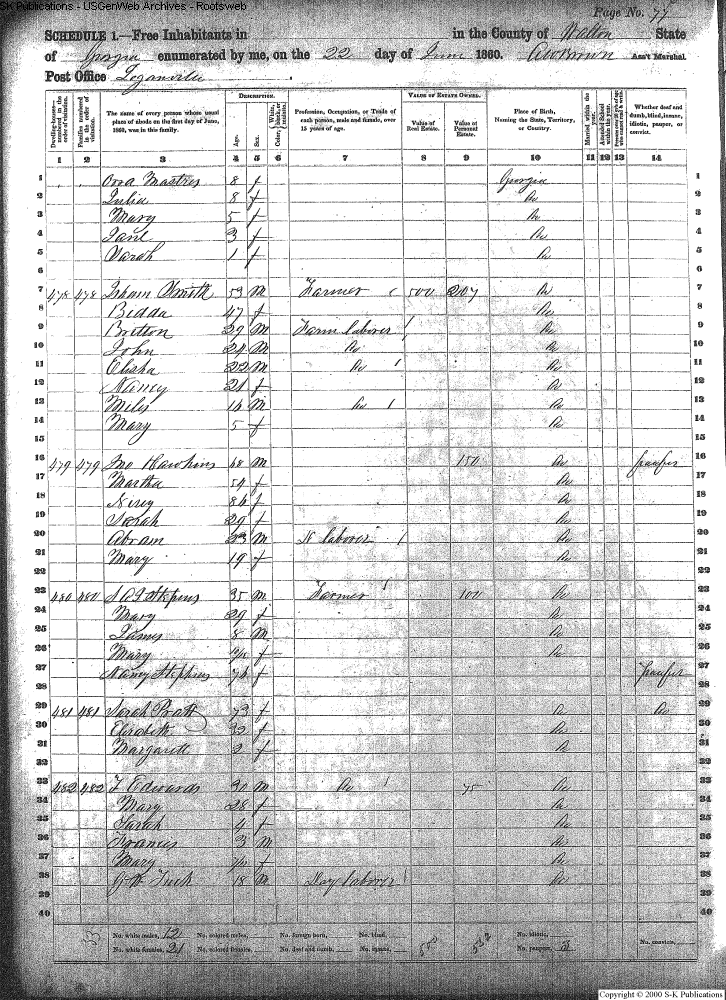 S-K Publications - USGenWeb Archives - Rootsweb
Page No. 77
SCHEDULE 1.—Free Inhabitants in in the County of Walton State
of Georgia enumerated by me, on the 22 day of June 1860. Ass't Marshal.
Post Office Loganville
DESCRIPTION. VALUE OF ESTATE OWNED.
Dwelling-houses—numbered in the order of visitation. Families numbered in the order of visitation. The name of every person whose usual place of abode on the first day of June, 1860, was in this family. Age. Sex. Color, White, black, or mulatto. Profession, Occupation, or Trade of each person, male and female, over 15 years of age. Value of Real Estate. Value of Personal Estate. Place of Birth, Naming the State, Territory, or Country. Married within the year. Attended School within the year. Whether deaf and dumb, blind, insane, idiotic, pauper, or convict.
1 2 3 4 5 6 7 8 9 10 11 12 13 14
1 8 f Georgia 1
2 Julia 8 f Do 2
3 Mary 5 f Do 3
4 Jane 3 f Do 4
5 Sarah 1 f Do 5
6 6
7 478 478 Isham Smith 53 M Farmer 500 207 Do 7
8 Bidda 47 f Do 8
9 Britton 29 M Farm laborer Do 9
10 John 24 M Do Do 10
11 Elisha 22 M Do Do 11
12 Nancy 21 f Do 12
13 Miles 16 M Do Do 13
14 Mary 5 f Do 14
15 15
16 479 479 Jno Hawkins 68 M 150 Do pauper 16
17 Martha 54 f Do 17
18 86 f Do 18
19 Sarah 29 f Do 19
20 Abram 23 M laborer Do 20
21 Mary 19 f Do 21
22 22
23 480 480 Stephens 35 M Farmer 100 Do 23
24 Mary 29 f Do 24
25 James 8 M Do 25
26 Mary f Do 26
27 Nancy Stephens 76 f pauper 27
28 28
29 481 481 Sarah Pratt 73 f Do Do 29
30 Elizabeth 32 f Do 30
31 Margarett 2 f Do 31
32 32
33 482 482 Edwards 30 M Do 75 Do 33
34 Mary 28 f Do 34
35 Sarah 4 f Do 35
36 Francis 3 M Do 36
37 Mary f Do 37
38 18 M Day laborer Do 38
39 39
40 40
No. white males, 12 No. colored males, No. foreign born, No. blind, No. idiotic,
No. white females, 21 No. colored females, No. deaf and dumb, No. insane, 500 532 No. paupers, 3 No. convicts,
Copyright © 2000 S-K Publications